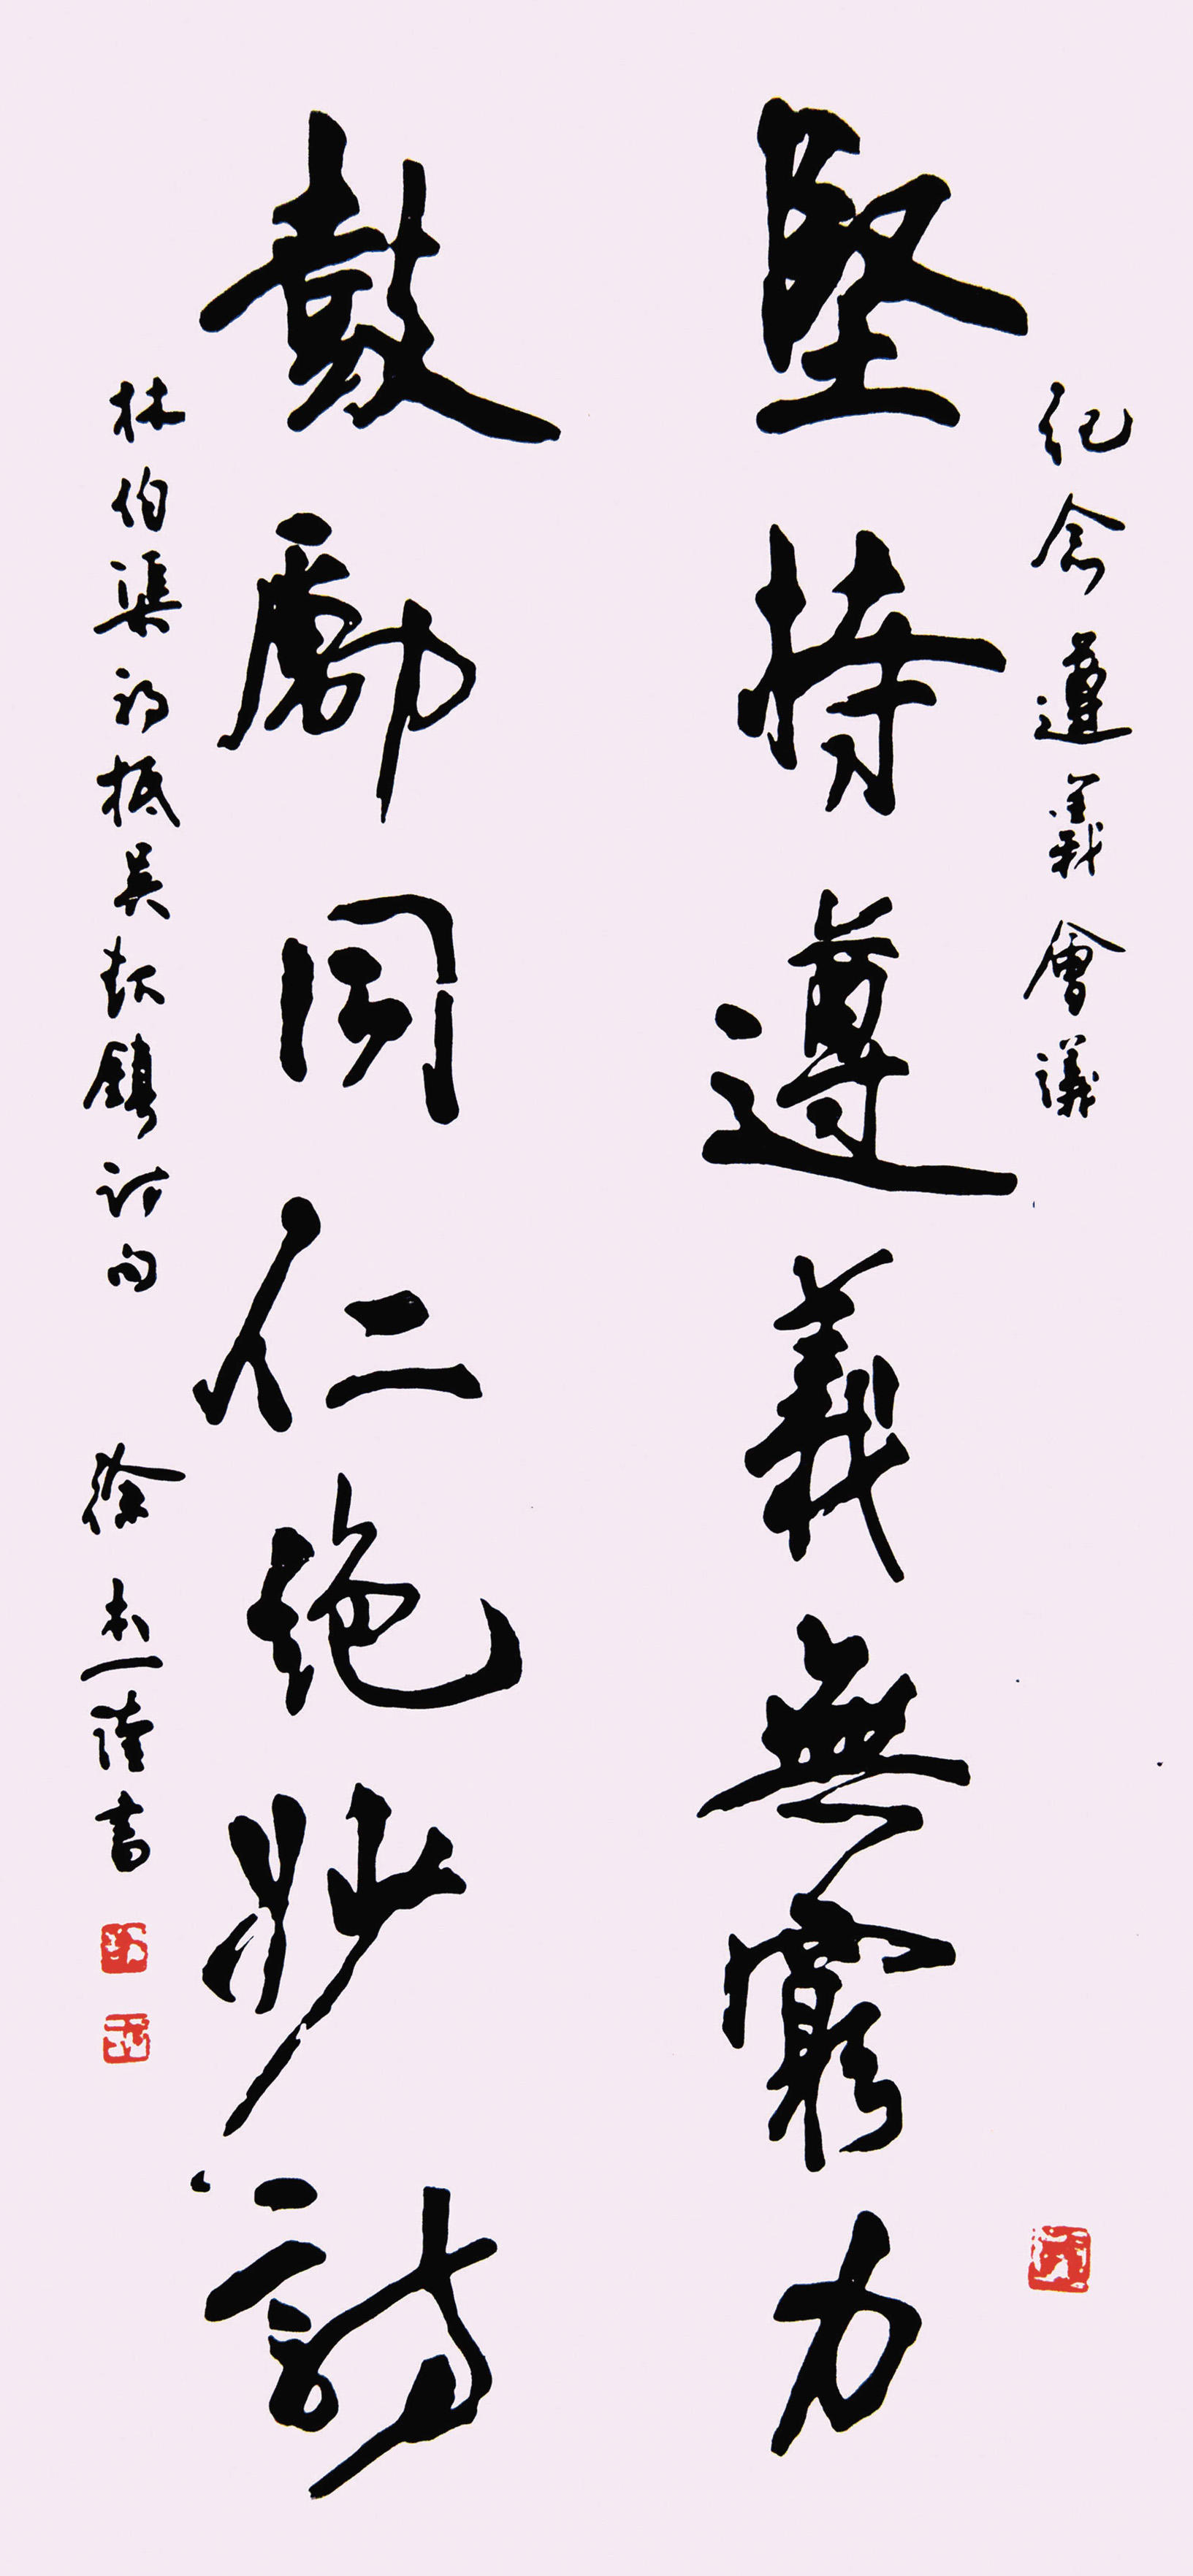 紀念遵義會議
堅持遵義無窮力
鼓勵同仁絶妙詩
林伯渠初抵吴起鎮詩句
徐本一 書